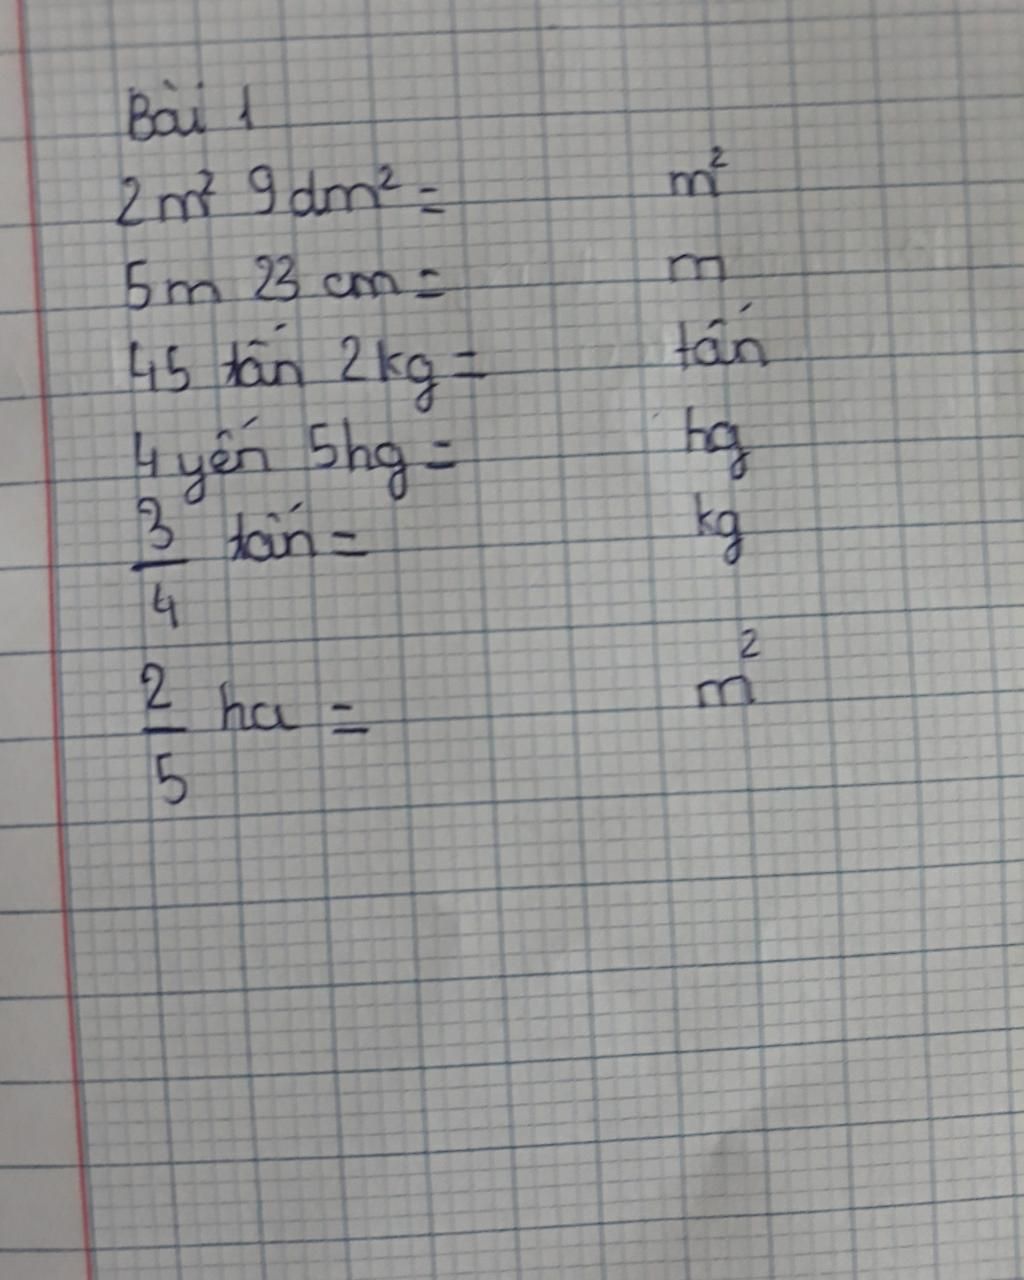 Bài 1
2m² 9dm² = m²
5m 23 cm = m
45 tấn 2kg = tấn
4 yến 5hg = hg
3/4 tấn = kg
2/5 ha = m²